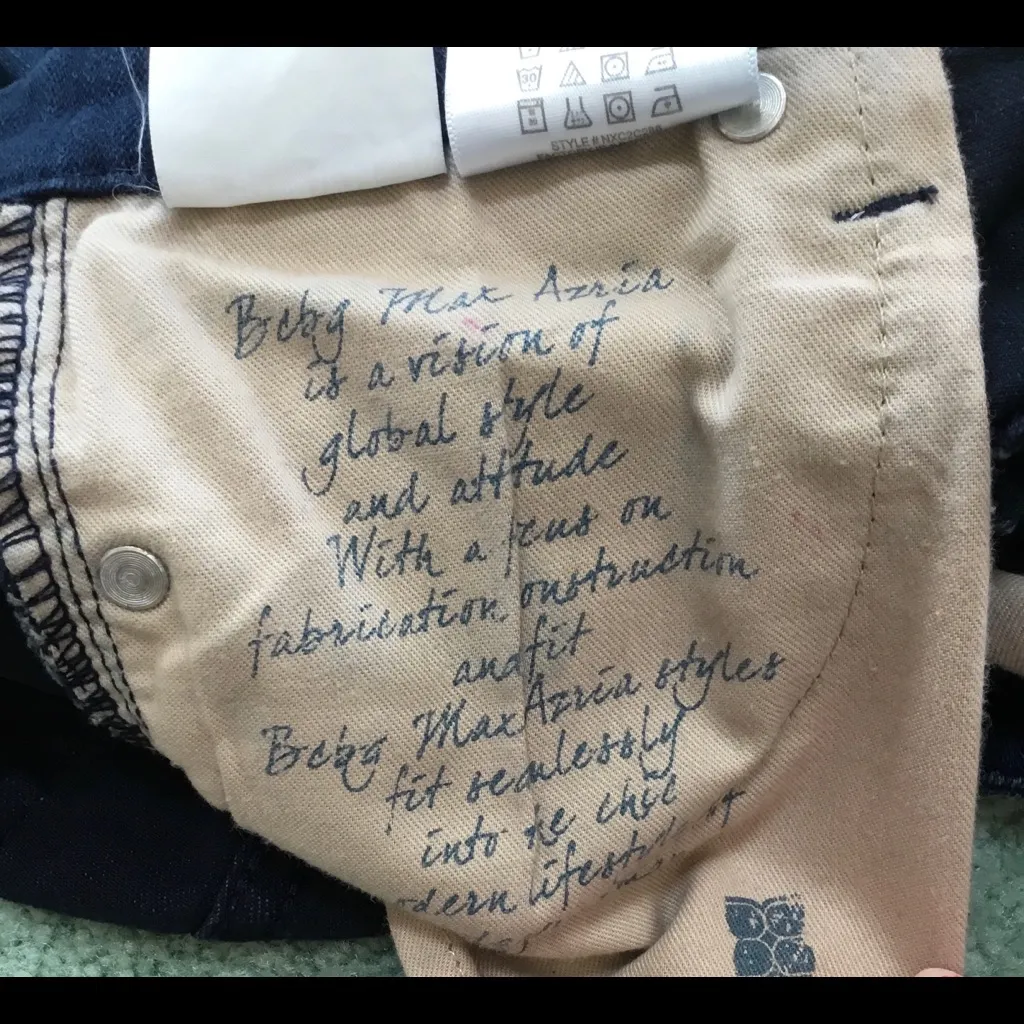 30
STYLE # NXC2C288
Bcbg Max Azria
is a vision of
global style
and attitude
With a fcus on
fabrication onstruction
and fit
Bcbg Max Azria styles
fit sealessly
into te chic
dern lifestyle of